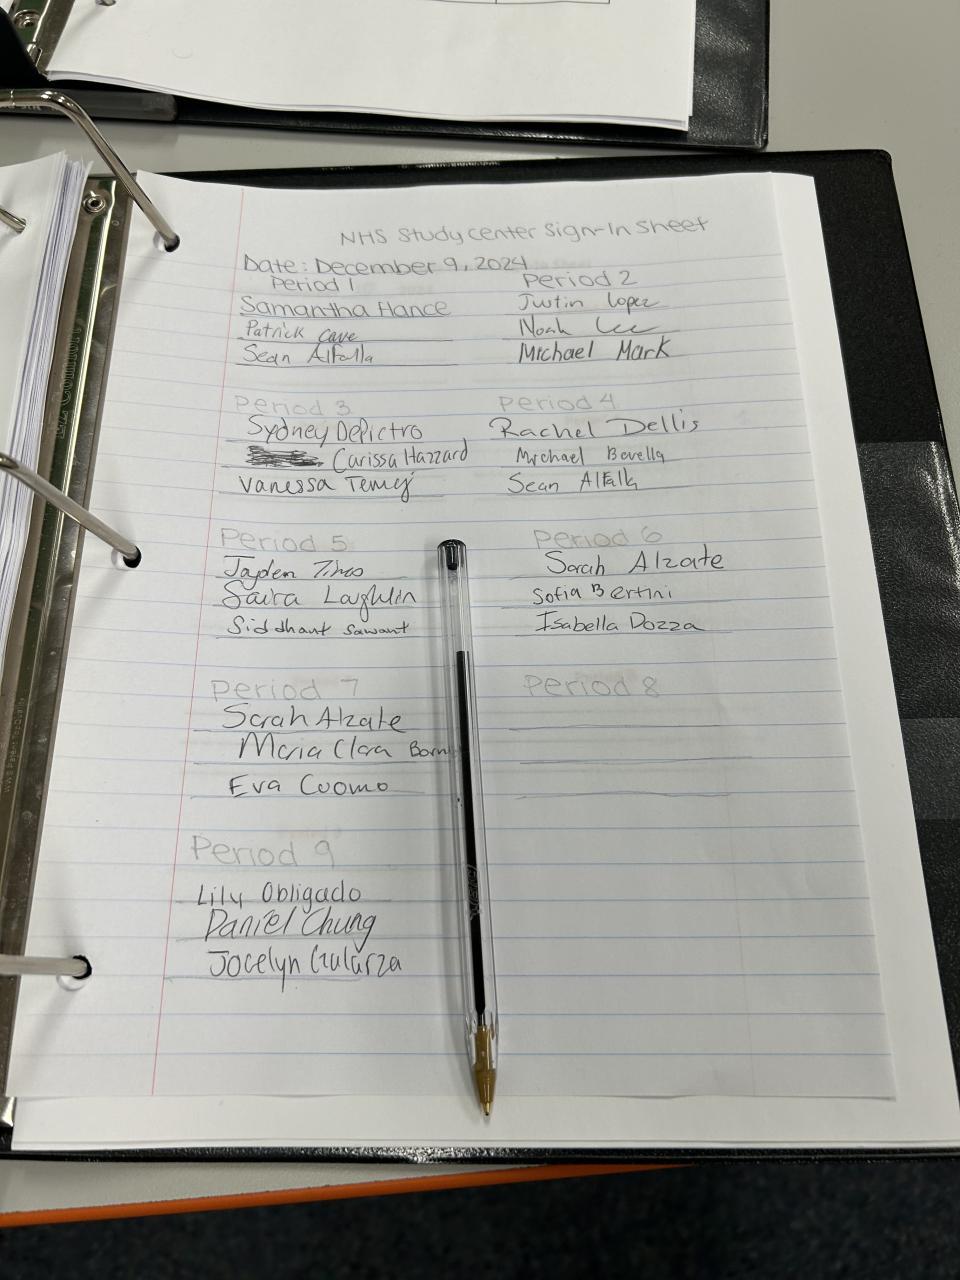 NHS Study Center Sign-In Sheet
Date: December 9, 2024
Period 1
Samantha Hance
Patrick Cave
Sean Alfalla
Period 2
Justin Lopez
Noah Lee
Michael Mark
Period 3
Sydney DePietro
Carissa Hazzard
Vanessa
Period 4
Rachel Dellis
Michael
Sean
Period 5
Jayden
Saira Laughlin
Siddhant Sawant
Period 6
Sarah Alzate
Sofia Bertini
Isabella Dozza
Period 7
Sarah Alzate
Maria Clara
Eva Cuomo
Period 8
Period 9
Lily Obligado
Daniel Chung
Jocelyn